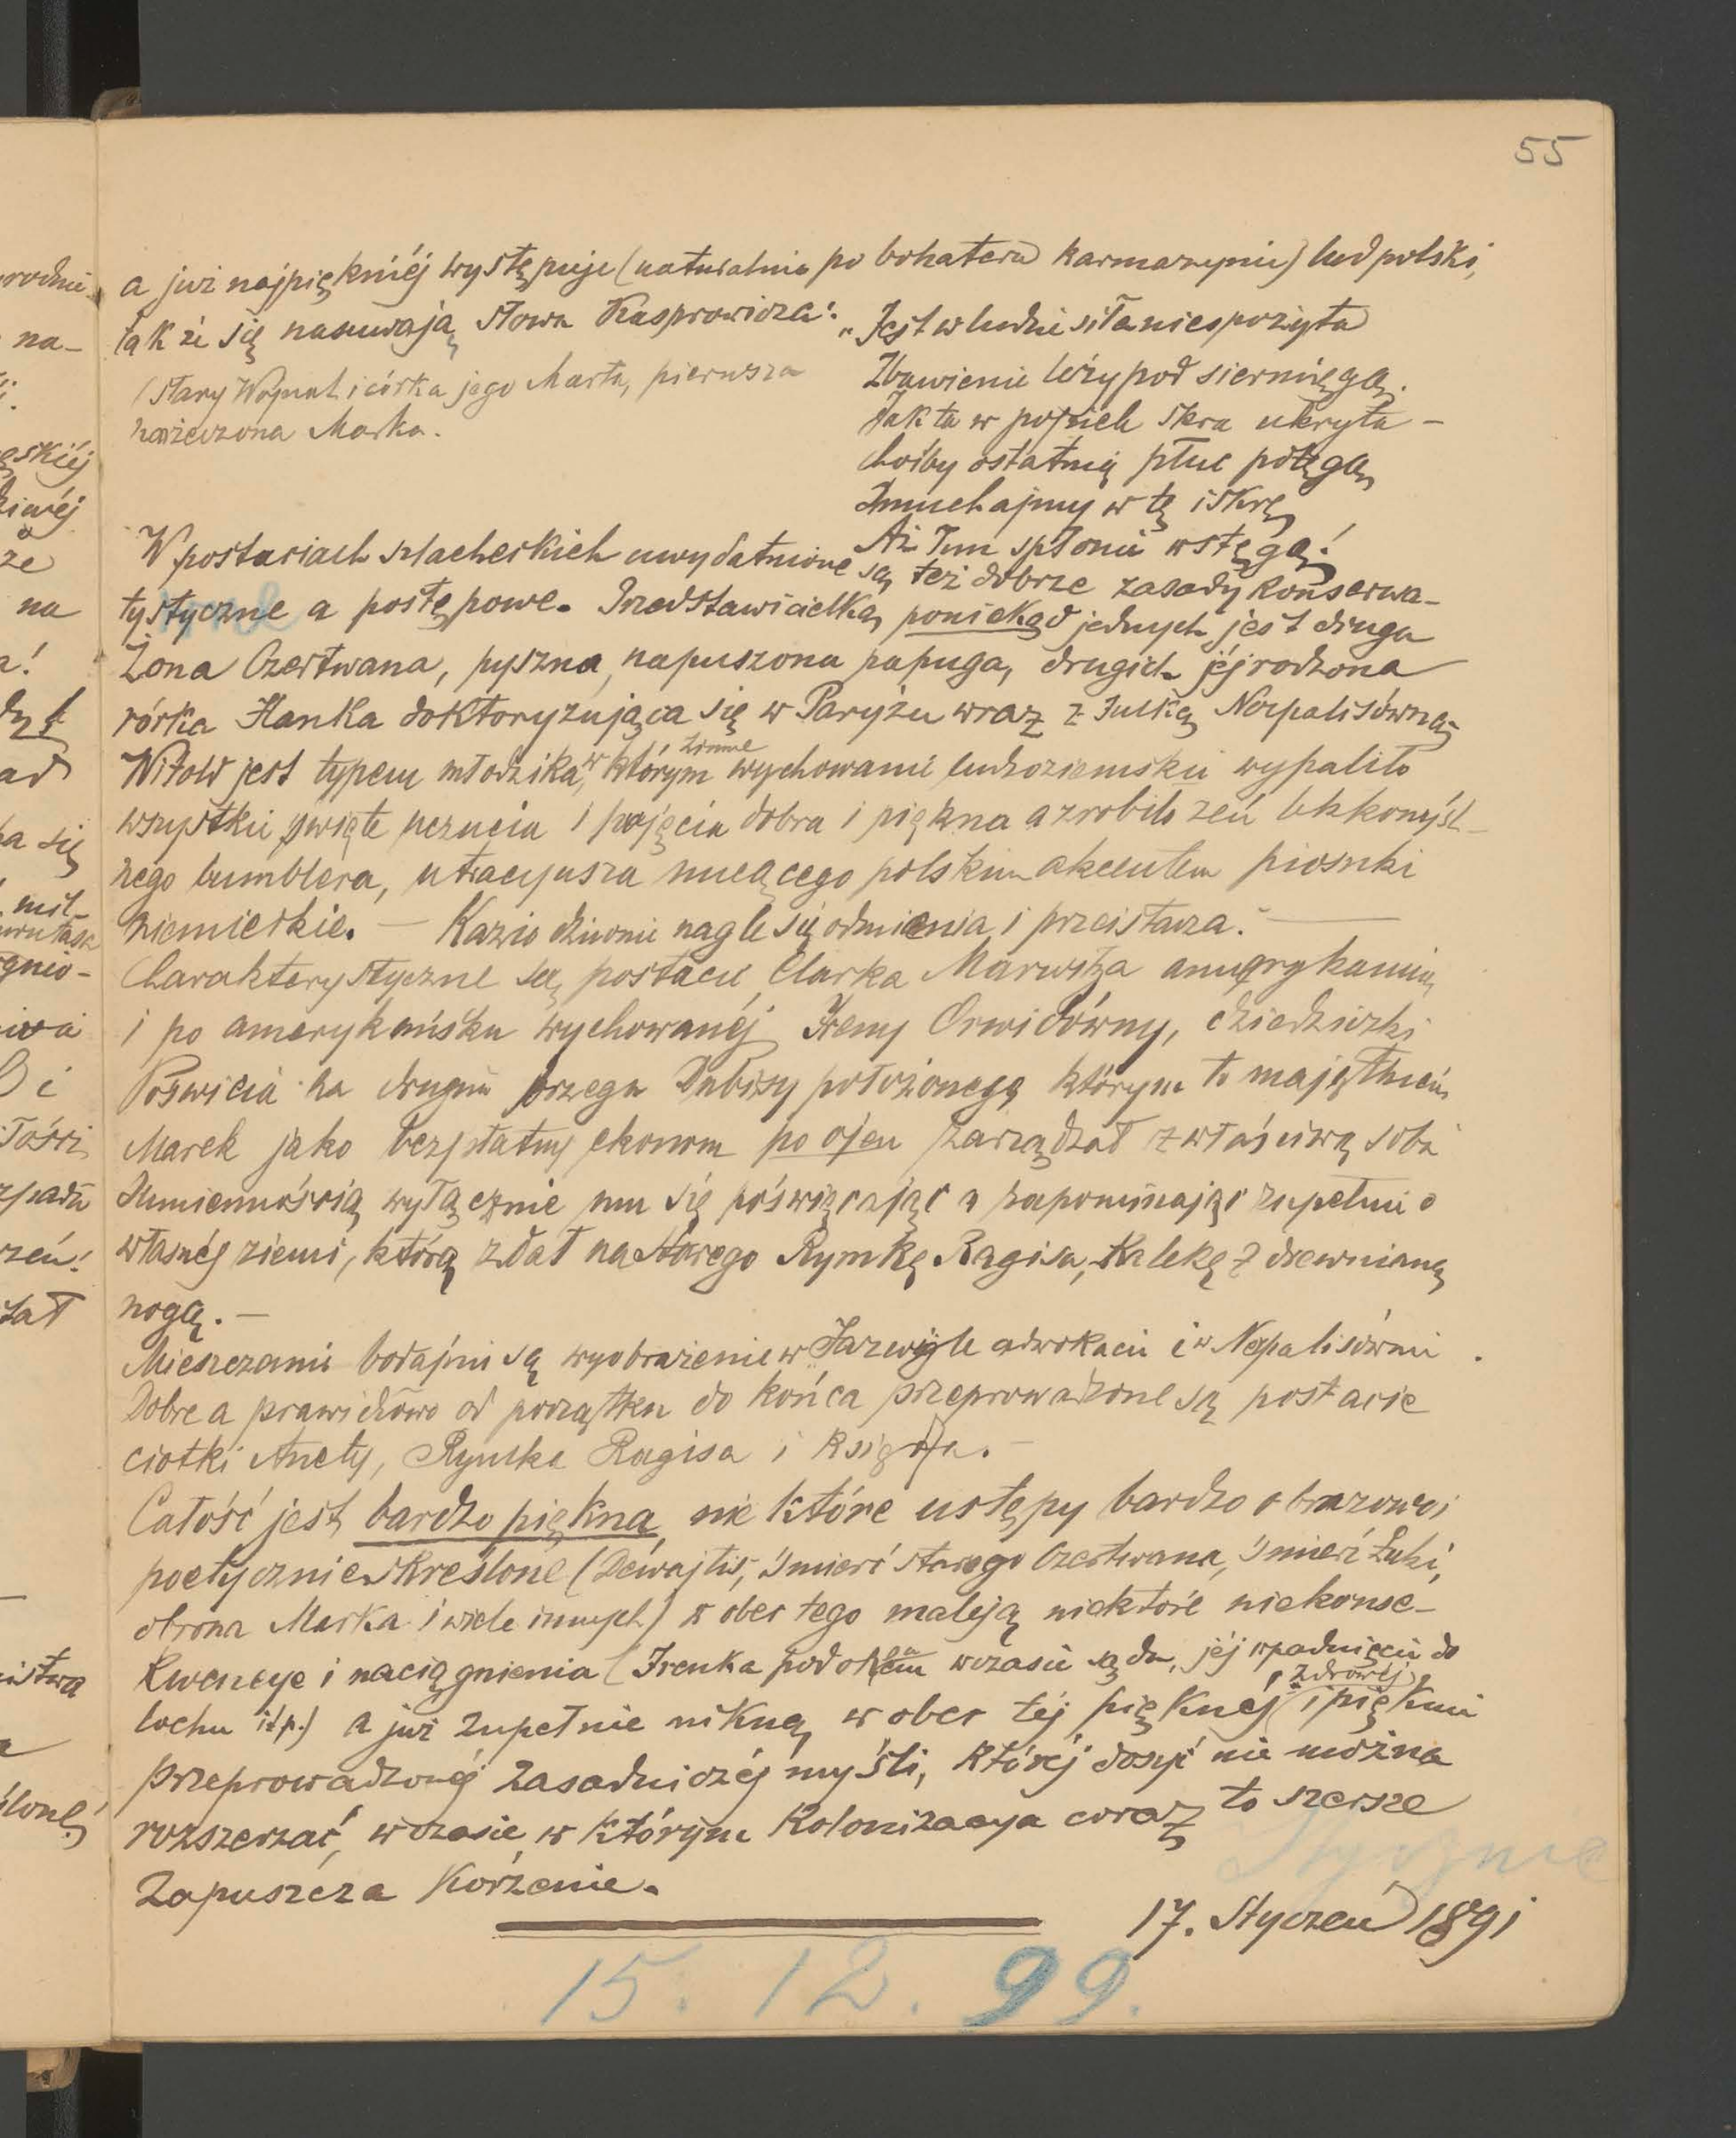 55
a już najpiękniéj występuje (naturalnie po bohaterze karmazynie) lud polski,
tak że się nasuwają słowa Kasprowicza:
„Jest w ludzie siła niespożyta
Zbawienie leży pod siermięgą.
Jak ta w popiele skra ukryta –
Choćby ostatnią płuc potęgą
Dmuchajmy w tę iskrę
Aż Tum spłonie wstęgą!
(Stary Wojnat i córka jego Marta, pierwsza
narzeczona Marka.
W postaciach szlacheckich uwydatnione są też dobrze zasady konserwa-
tystyczne a postępowe. Przedstawicielką poniekąd jednych jest druga
Żona Czertwana, pyszna, napuszona papuga, drugich jéj rodzona
córka Hanka doktoryzująca się w Paryżu wraz z Julką Nerpalisówną
Witold jest typem młodzika, w którym zimne wychowanie cudzoziemskie wypaliło
wszystkie święte uczucia i pojęcia dobra i piękna a zrobiło zeń lekkomyśl-
nego bumblera, utracyusza nucącego polskim akcentem piosnki
niemieckie. — Kazio dziwnie nagle się odmienia i przeistacza. —
Charakterystyczne są postacie Clarka Marwitza amerykanina
i po amerykańsku wychowanéj Ireny Orwidówny, dziedziczki
Poświcia na drugim brzegu Dubissy położonego którym to majątkiem
Marek jako bezpłatny ekonom po ojcu zarządzał z właściwą sobie
sumiennością wyłącznie mu się poświęcając a zapominając zupełnie o
własnéj ziemi, którą zdał na starego Rymkę Ragisa, kalekę z drewnianą
nogą. —
Mieszczanie bodajnie są wyobrażenie w Jazwigle adwokacie i w Nerpalisównie.
Dobre a prawidłowo od początku do końca przeprowadzone są postacie
ciotki Anety, Rymka Ragisa i księdza. —
Całość jest bardzo piękna nie które ustępy bardzo obrazowo i
poetycznie skreślone (Dewajtis, śmierć starego Czertwana, śmierć Łuki,
obrona Marka i wiele innych) w obec tego maleją niektóre niekonse-
kwencye i naciągnienia (Irenka pod oknem w czasie sądu, jéj wpadnięcie do
lochu itp.) a już zupełnie nikną w obec téj pięknéj, zdrowéj i pięknie
przeprowadzonéj zasadniczéj myśli, któréj dosyć nie można
rozszerzać, w czasie w którym Kolonizacya coraz to szersze
Zapuszcza Korzenie.
17. Styczeń 1891
15. 12. 99.